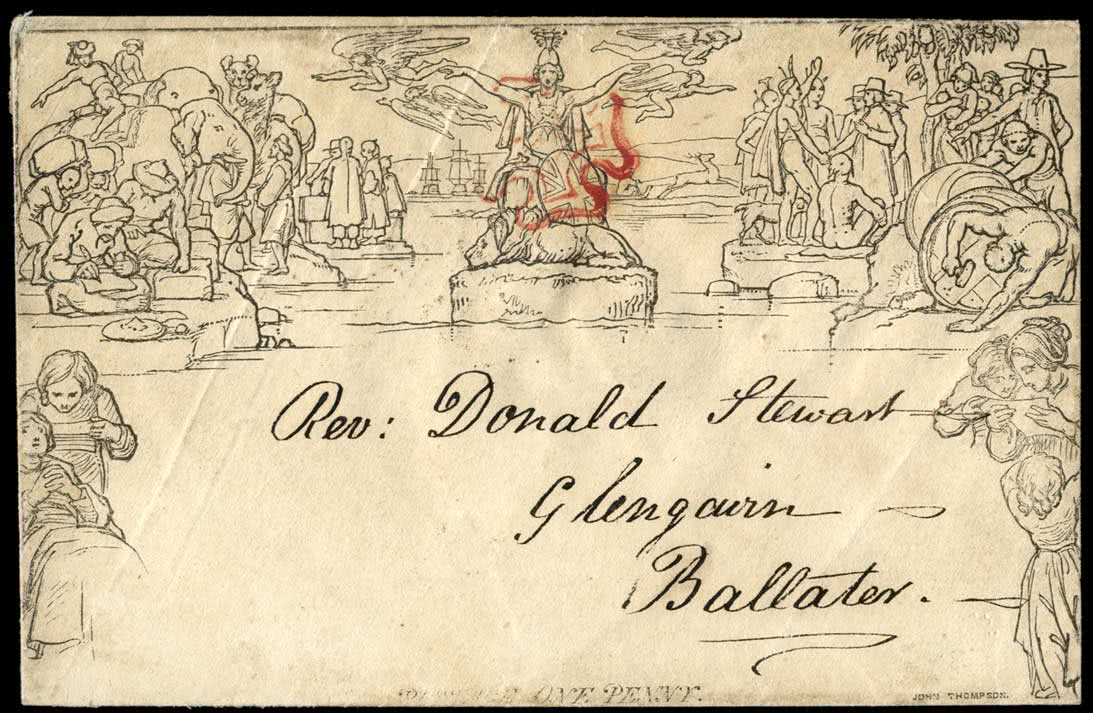 Rev: Donald Stewart
Glengairn
Ballater.
POSTAGE ONE PENNY.
JOHN THOMPSON.